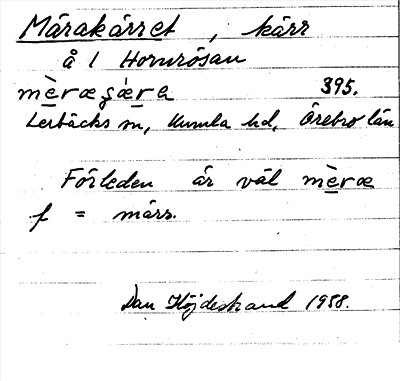 Märakärret, kärr
å 1 Hornrösan
mèræɡæ̀ra 395.
Lerbäcks sn, Kumla hd, Örebro län
Förleden är väl mèræ
f = märr.
Dan Höjdestrand 1958.